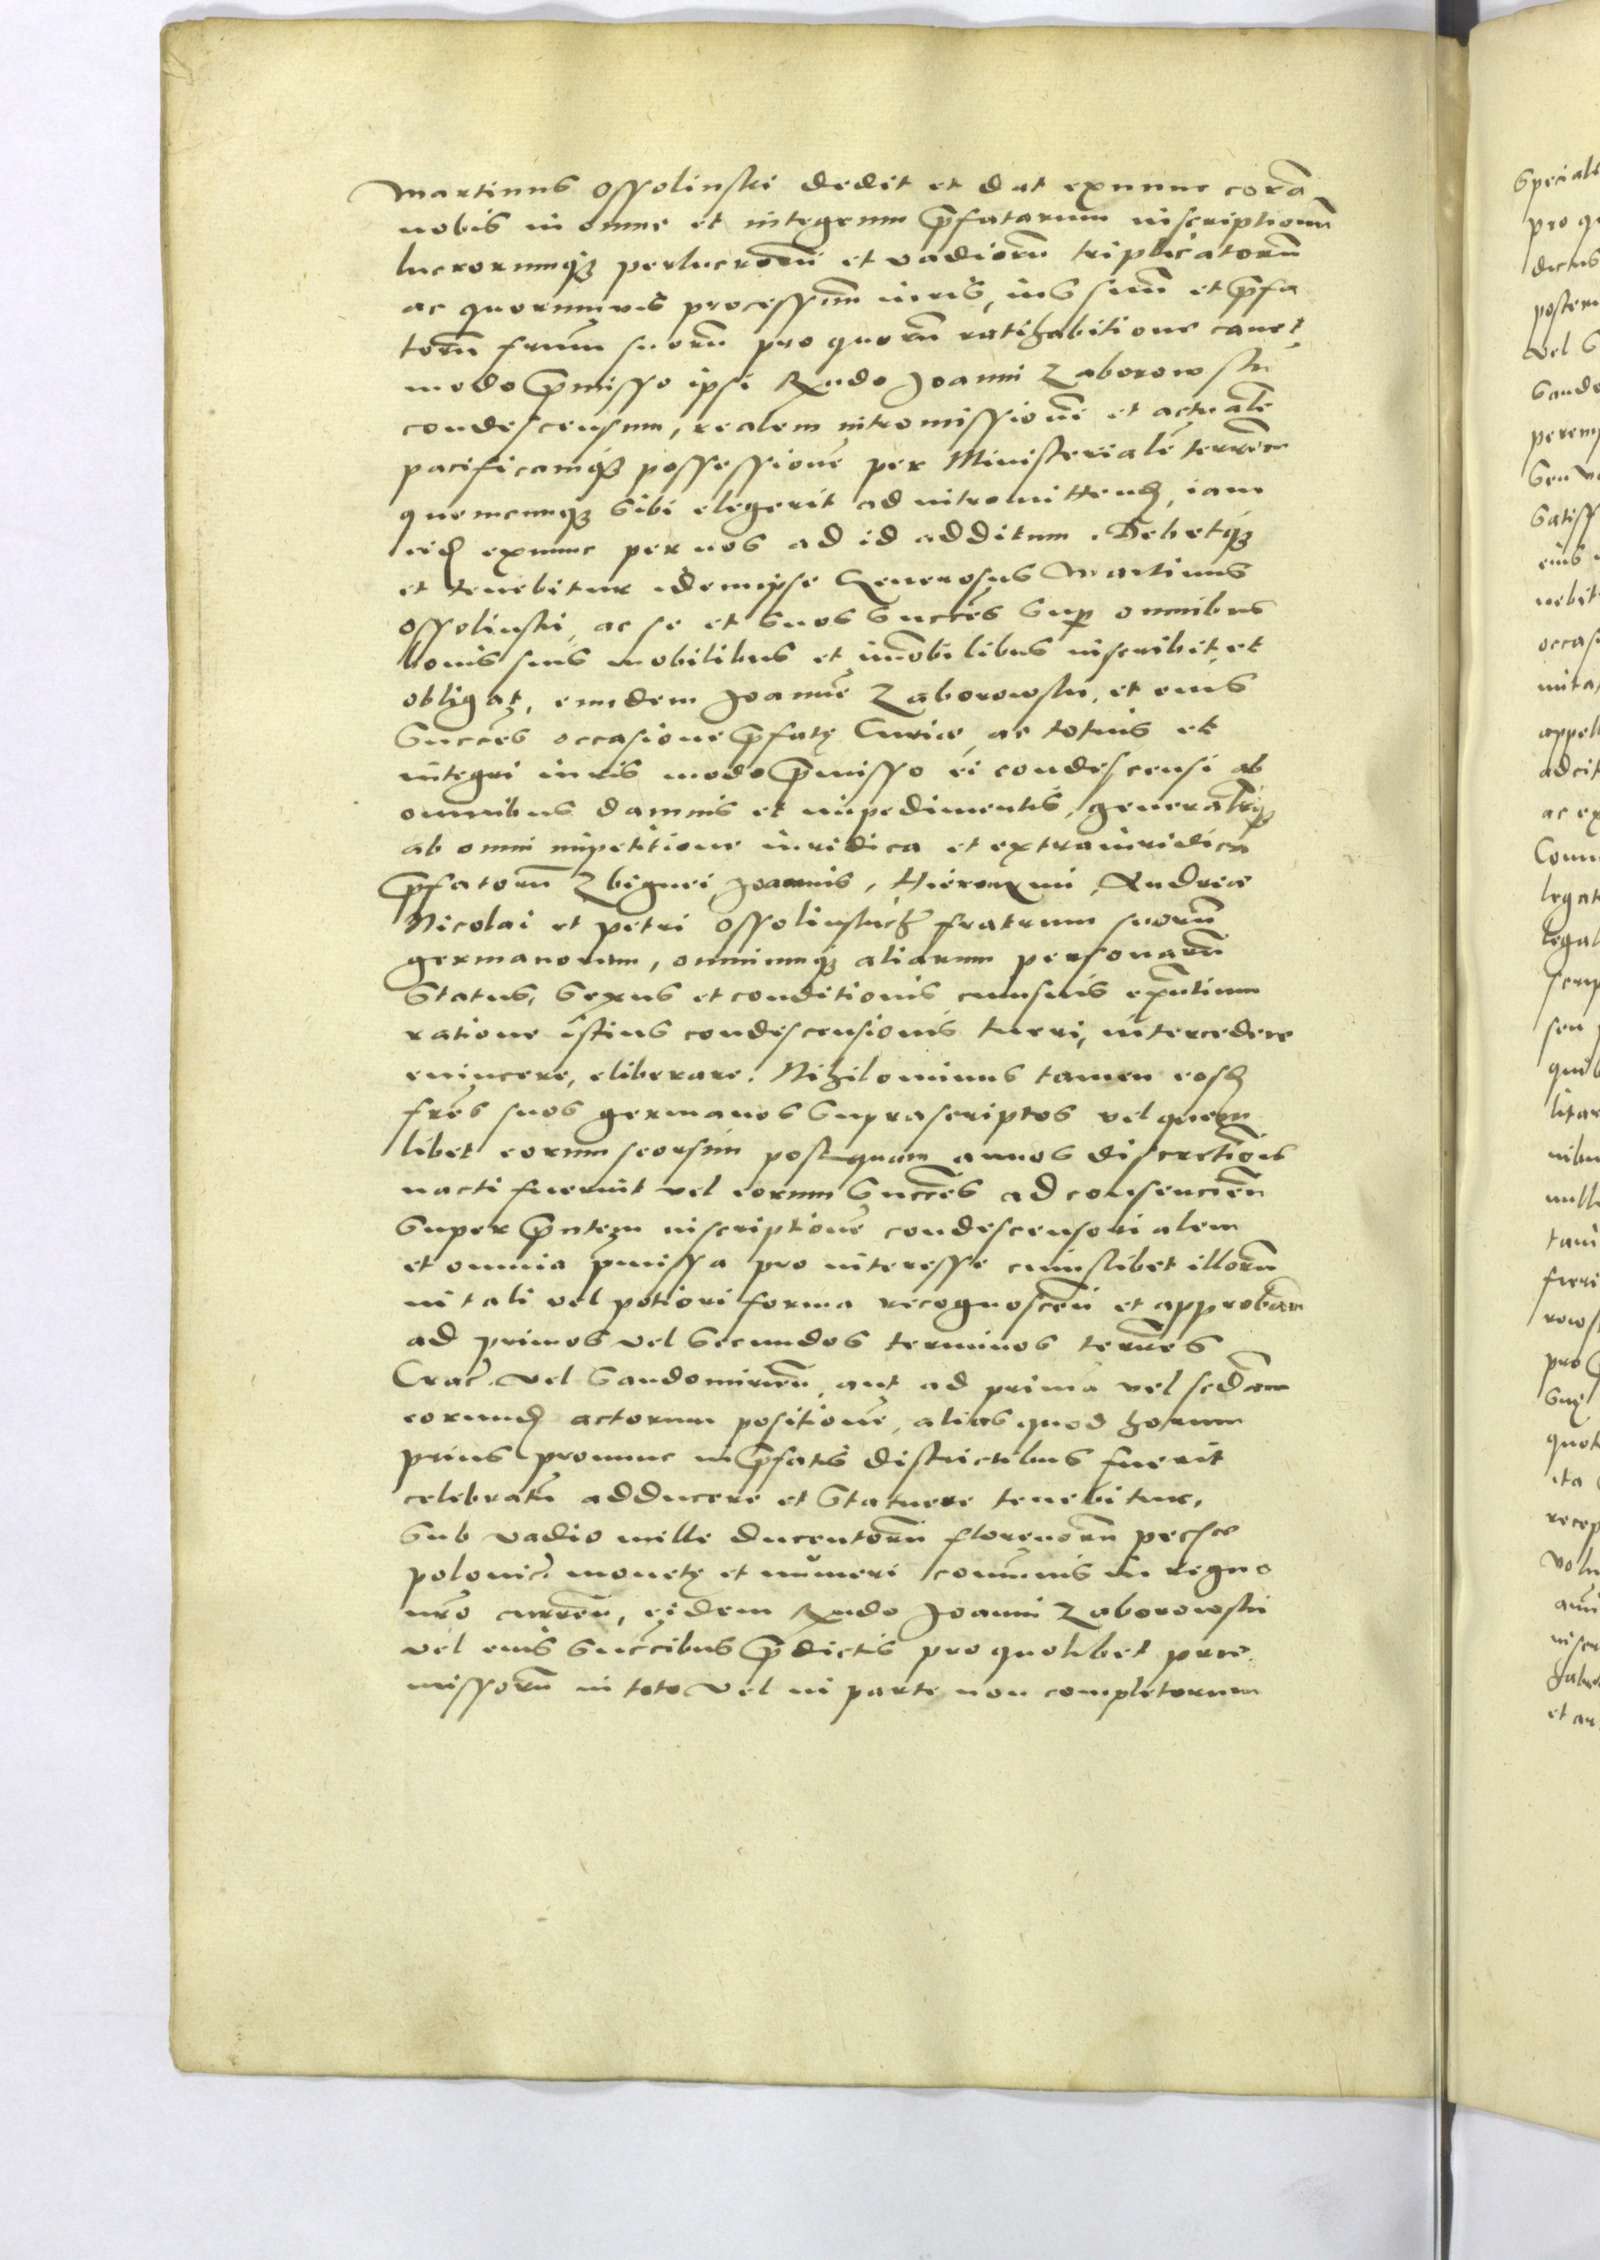 Martinus Ossolinski dedit et dat exnunc corã
nobis in omne et integrum p̃fatarum inscriptionũ
lucrorumq; perlucrorũ et vadiorũ triplicatorũ
ac quorumvis processum iuris, ius suũ et p̃fa
torũ frũm suorũ pro quorũ ratihabitione cavet
modo p̃misso ipsi Rndo Joanni Zaborowski
condescensum, realem intromissionẽ et actualẽ
pacificamq; possessionẽ per Ministerialẽ terrẽ
quemcunq; sibi elegerit ad intromittend, iam
eid exnunc per nos ad id additum. Debetq;
et tenebitur idemipse Generosus Martinus
Ossolinski, ac se et suos succẽs sup omnibus
bonis suis mobilibus et im̃obilibus inscribit et
obligat, eundem Joannẽ Zaborowski, et eius
Succẽs occasione p̃fatę Curiæ, ac totius et
integri iuris modo p̃misso ei condescensi ab
omnibus damnis et impedimentis, generalr̃q;
ab omni impetitione iuridica et extraiuridica
p̃fatorũ Zbignei Joannis, Hieronymi, Andreæ
Nicolai et Petri Ossolinskich fratrum suorũ
germanorum, omniumq; aliarum personarũ
Status, sexus et conditionis cuiusvis exñtium
ratione istius condescensionis tueri, intercedere
evincere, eliberare. Nihilominus tamen eosd
frẽs suos germanos suprascriptos vel quem
libet eorum seorsim postquam annos discretiõis
nacti fuerint vel eorum Succẽs ad consenciẽn
super p̃ntem inscriptionẽ condescensorialem
et omnia p̃missa pro interesse cuiuslibet illorũ
in tali vel potiori forma recognoscẽn et approbãn
ad primos vel secundos terminos terrẽs
Crac. vel Sandomiriẽn, aut ad prima vel scdam
eorund actorum positionẽ, alias quod horum
prius pronunc in p̃fatis districtibus fuerit
celebratũ adducere et statuere tenebitur,
Sub vadio mille ducentorũ florenorũ pecñiæ
polonic. monetę et numeri com̃unis in regno
nrõ currẽn, eidem Rndo Joanni Zaborowski
vel eius succc̃ibus p̃dictis pro quolibet præ
missorũ in toto vel in parte non completorum